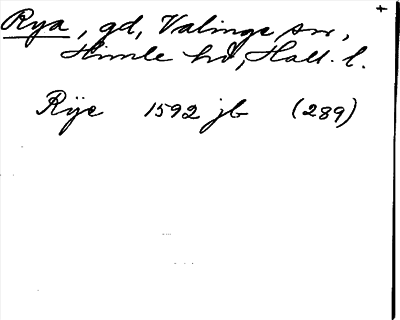 +
Rya, gd, Valinge sn,
Himle hd, Hall. l.
Rije 1592 jb (289)